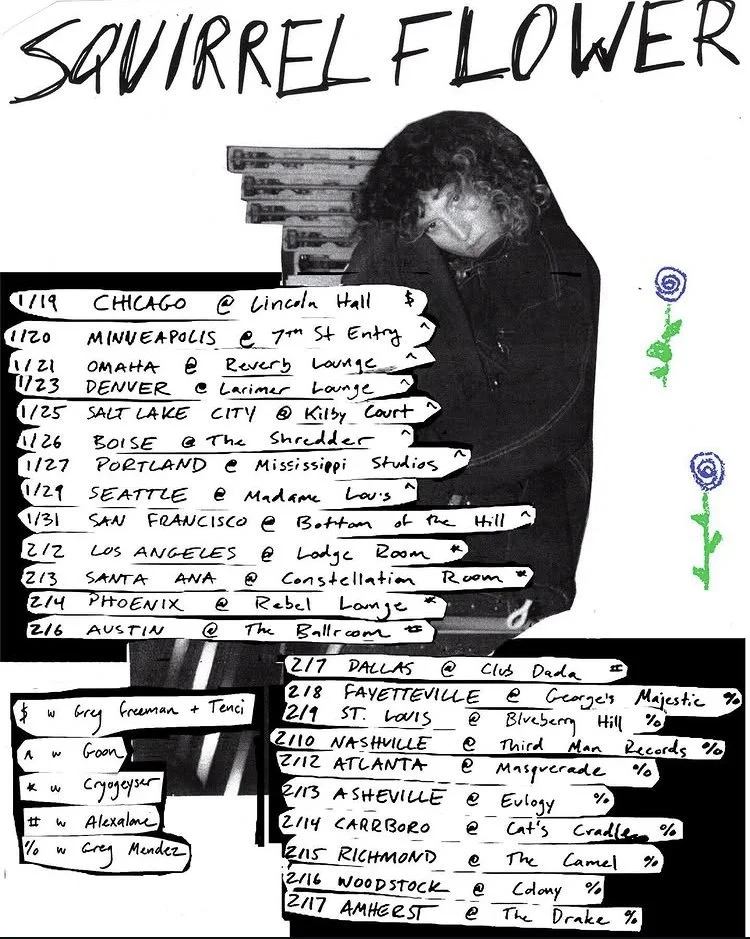 SQUIRREL FLOWER
1/19 CHICAGO @ Lincoln Hall $
1/20 MINNEAPOLIS @ 7TH St Entry ^
1/21 OMAHA @ Reverb Lounge ^
1/23 DENVER @ Larimer Lounge ^
1/25 SALT LAKE CITY @ Kilby Court ^
1/26 BOISE @ The Shredder ^
1/27 PORTLAND @ Mississippi Studios ^
1/29 SEATTLE @ Madame Lou's ^
1/31 SAN FRANCISCO @ Bottom of the Hill ^
2/2 LOS ANGELES @ Lodge Room *
2/3 SANTA ANA @ Constellation Room *
2/4 PHOENIX @ Rebel Lounge *
2/6 AUSTIN @ The Ballroom #
2/7 DALLAS @ Club Dada #
2/8 FAYETTEVILLE @ George's Majestic %
2/9 ST. LOUIS @ Blueberry Hill %
2/10 NASHVILLE @ Third Man Records %
2/12 ATLANTA @ Masquerade %
2/13 ASHEVILLE @ Eulogy %
2/14 CARRBORO @ Cat's Cradle %
2/15 RICHMOND @ The Camel %
2/16 WOODSTOCK @ Colony %
2/17 AMHERST @ The Drake %
$ w Greg Freeman + Tenci
^ w Goon
* w Cryogeyser
# w Alexalone
% w Greg Mendez